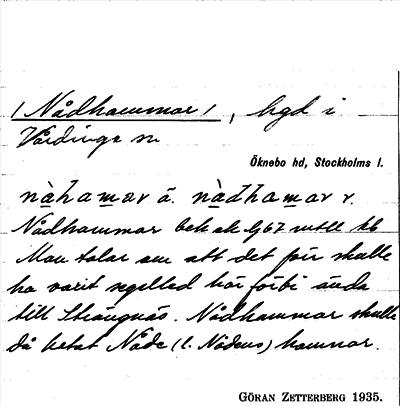 (Nådhammar), hgd i
Vårdinge sn
Öknebo hd, Stockholms l.
nàhamar ä. nàdhamar r.
Nådhammar bet. ak. 967 mtll
Man talar om att det förr skulle
ha varit segelled här förbi ända
till Strängnäs. Nådhammar skulle
då hetat Nåde (l. Nådens) hamnar.
GÖRAN ZETTERBERG 1935.